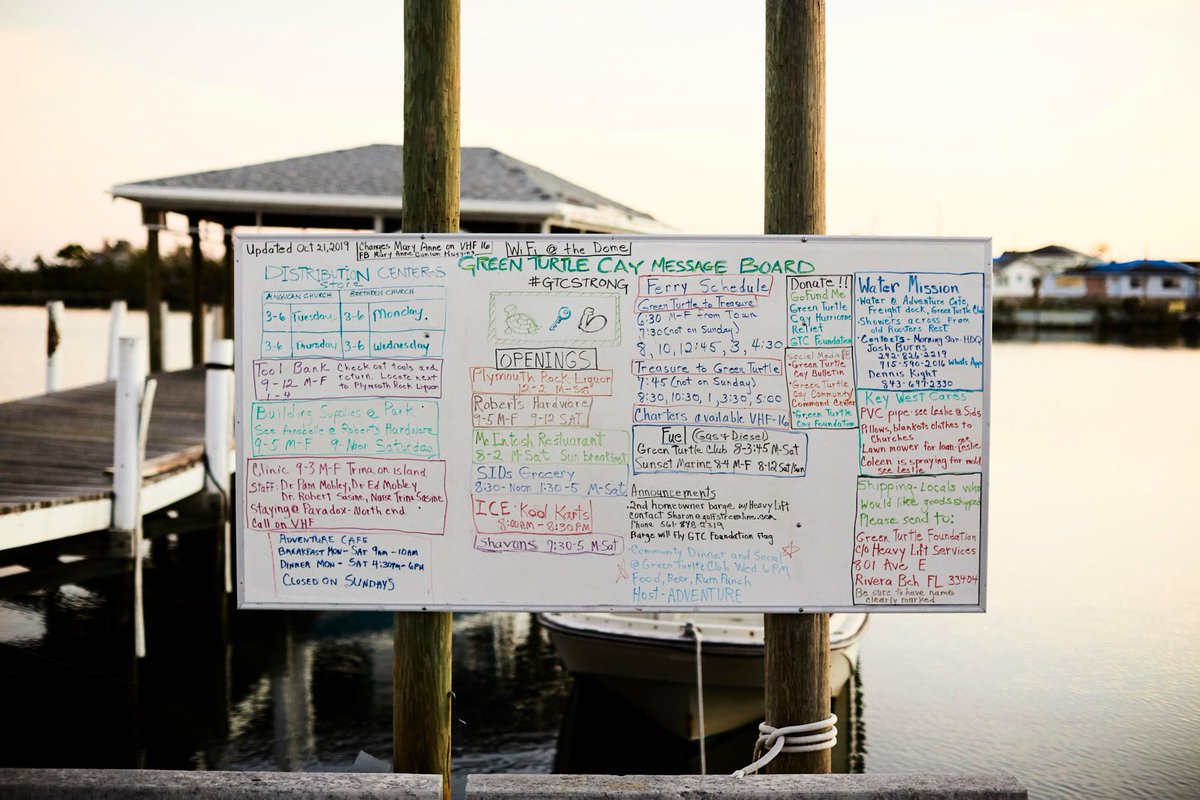 Updated Oct 21, 2019
Changes Mary Anne on VHF 16
FB Mary Anne
WiFi @ the Dome
GREEN TURTLE CAY MESSAGE BOARD
#GTCSTRONG
DISTRIBUTION CENTERS
STORE
ANGLICAN CHURCH
BRETHREN CHURCH
3-6 Tuesday. 3-6 Monday.
3-6 Thursday 3-6 Wednesday
Tool Bank Check out tools and
9-12 M-F return. Locate next
1-4 to Plymouth Rock Liquor
Building Supplies @ Park
See Annabelle @ Roberts Hardware
9-5 M-F 9-Noon Saturday
Clinic 9-3 M-F Trina on island
Staff: Dr Pam Mobley, Dr Ed Mobley
Dr. Robert Sasine, Nurse Trina Sasine
Staying @ Paradox-North end
Call on VHF
ADVENTURE CAFE
BREAKFAST MON-SAT 9am-10am
DINNER MON-SAT 4:30pm-6pm
CLOSED ON SUNDAYS
OPENINGS
Plymouth Rock Liquor
12-2 M-Sat
Roberts Hardware
9-5 M-F 9-12 SAT
McIntosh Restuarant
8-2 M-Sat Sun breakfast
SIDs Grocery
8:30-Noon 1:30-5 M-Sat
ICE-Kool Karts
8:00AM-8:30PM
Shavans 7:30-5 M-Sat
Ferry Schedule
Green Turtle to Treasure
6:30 M-F from Town
7:30 (not on Sunday)
8, 10, 12:45, 3, 4:30
Treasure to Green Turtle
7:45 (not on Sunday)
8:30, 10:30, 1, 3:30, 5:00
Charters available VHF-16
Fuel (Gas & Diesel)
Green Turtle Club 8-3:45 M-Sat
Sunset Marine, 8-4 M-F 8-12 Sat/Sun
Announcements
2nd homeowner barge w/ Heavy Lift
contact Sharon
Phone 561-878-2319
Barge will Fly GTC Foundation Flag
Community Dinner and Social
@ Green Turtle Club Wed 6PM
Food, Beer, Rum Punch
Host-ADVENTURE
Donate!!
GoFund Me
Green Turtle
Cay Hurricane
Relief
GTC Foundation
Social Media FB
Green Turtle
Cay Bulletin
Green Turtle
Cay Community
Command Center
Green Turtle
Cay Foundation
Water Mission
Water @ Adventure Cafe,
Freight dock, Green Turtle Club
Showers across from
old Roosters Rest
Contacts-Morning Star-HDQ
Josh Burns
242-826-2219
715-590-2016 Whats App
Dennis Kight
843-697-2330
Key West Cares
PVC pipe-see Leslie @ Sids
Pillows, blankets clothes to
Churches
Lawn mower for loan see Leslie
Coleen is spraying for mold
see Leslie
Shipping-Locals who
would like goods shipped
Please send to:
Green Turtle Foundation
c/o Heavy Lift Services
801 Ave E
Rivera Bch FL 33404
Be sure to have name
clearly marked